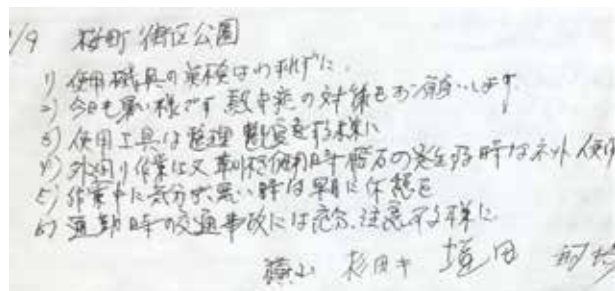 /9 桜町街区公園
1) 使用機具の点検はわすれずに.
2) 今日も暑い様です 熱中症の対策もお願いします
3) 使用工具は整理 する様に
4) 外回り作業は又草刈機使用時 石の発生する時はネット使用
5) 作業中に気分が、悪い時は早目に休憩を
6) 通勤時の交通事故には充分、注意する様に
横山 杉田キ 塩田